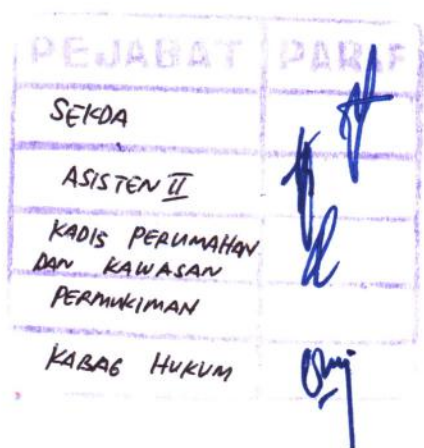 PEJABAT PARAF
SEKDA
ASISTEN II
KADIS PERUMAHAN
DAN KAWASAN
PERMUKIMAN
KABAG HUKUM